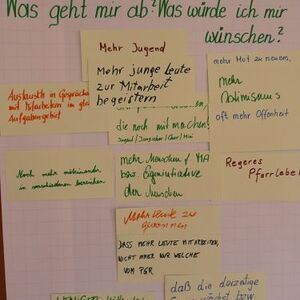 Was geht mir ab? Was würde ich mir
wünschen?
Mehr Jugend
Mehr junge Leute
zur Mitarbeit
begeistern
mehr Mut zu neuem,
mehr
Optimismus
oft mehr Offenheit
Austausch in Gespräch
mit Mitarbeitern im glei
Aufgabengebiet
die noch mitmachen!
Jugend / Jungschar / Chor / Mini
Noch mehr miteinander
in verschiedenen Bereichen
mehr Menschen
bzw. Eigeninitiative
der Menschen
Regeres
Pfarrlebe
Mehr Leute zu
gewinnen
DASS MEHR LEUTE MITARBEITEN,
NICHT IMMER NUR WELCHE
VOM PGR
daß die derzeitige
bzw.